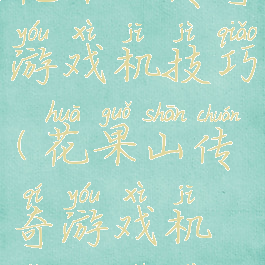 yóu xì jī jì qiǎo
游戏机技巧
huā guǒ shān chuán
(花果山传
qí yóu xì jī
奇游戏机